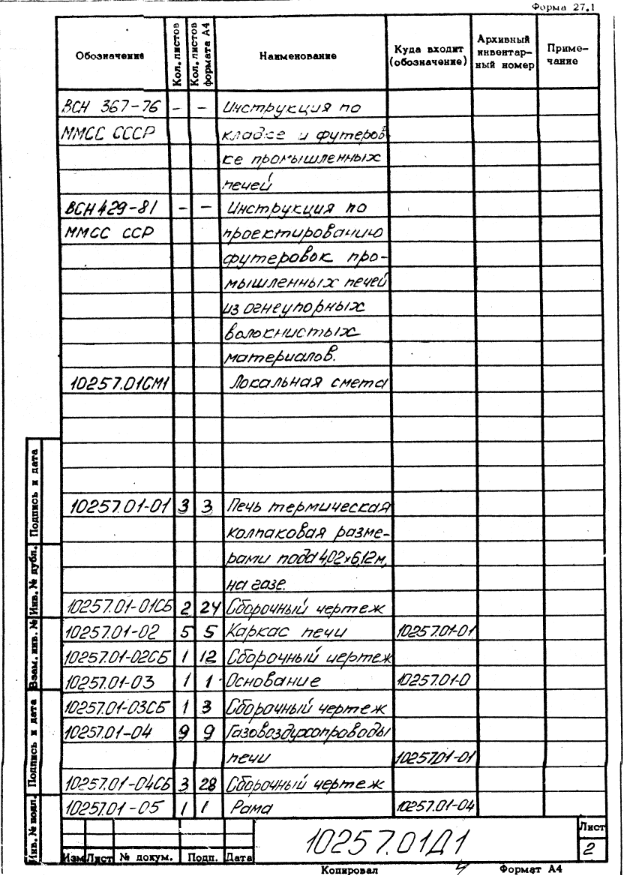 Форма 27.1
Обозначение Кол. листов Кол. листов формата А4 Наименование Куда входит (обозначение) Архивный инвентар-ный номер Приме-чание
ВСН 367-76 - - Инструкция по
ММСС СССР кладке и футеров
ке промышленных
печей
ВСН 429-81 - - Инструкция по
ММСС ССР проектированию
футеровок про-
мышленных печей
из огнеупорных
волокнистых
материалов.
10257.01СМ1 Локальная смета
10257.01-01 3 3 Печь термическая
колпаковая разме-
рами пода 4,02х6,12м,
на газе.
10257.01-01СБ 2 24 Сборочный чертеж
10257.01-02 5 5 Каркас печи 10257.01-01
10257.01-02СБ 1 12 Сборочный чертеж
10257.01-03 1 1 Основание 10257.01-0
10257.01-03СБ 1 3 Сборочный чертеж
10257.01-04 9 9 Газовоздухопроводы
печи 10257.01-01
10257.01-04СБ 3 28 Сборочный чертеж
10257.01-05 1 1 Рама 10257.01-04
Инв. № подл. Подпись и дата Взам. инв. № Инв. № дубл. Подпись и дата
10257.01Д1
Лист
2
Изм Лист № докум. Подп. Дата
Копировал Формат А4